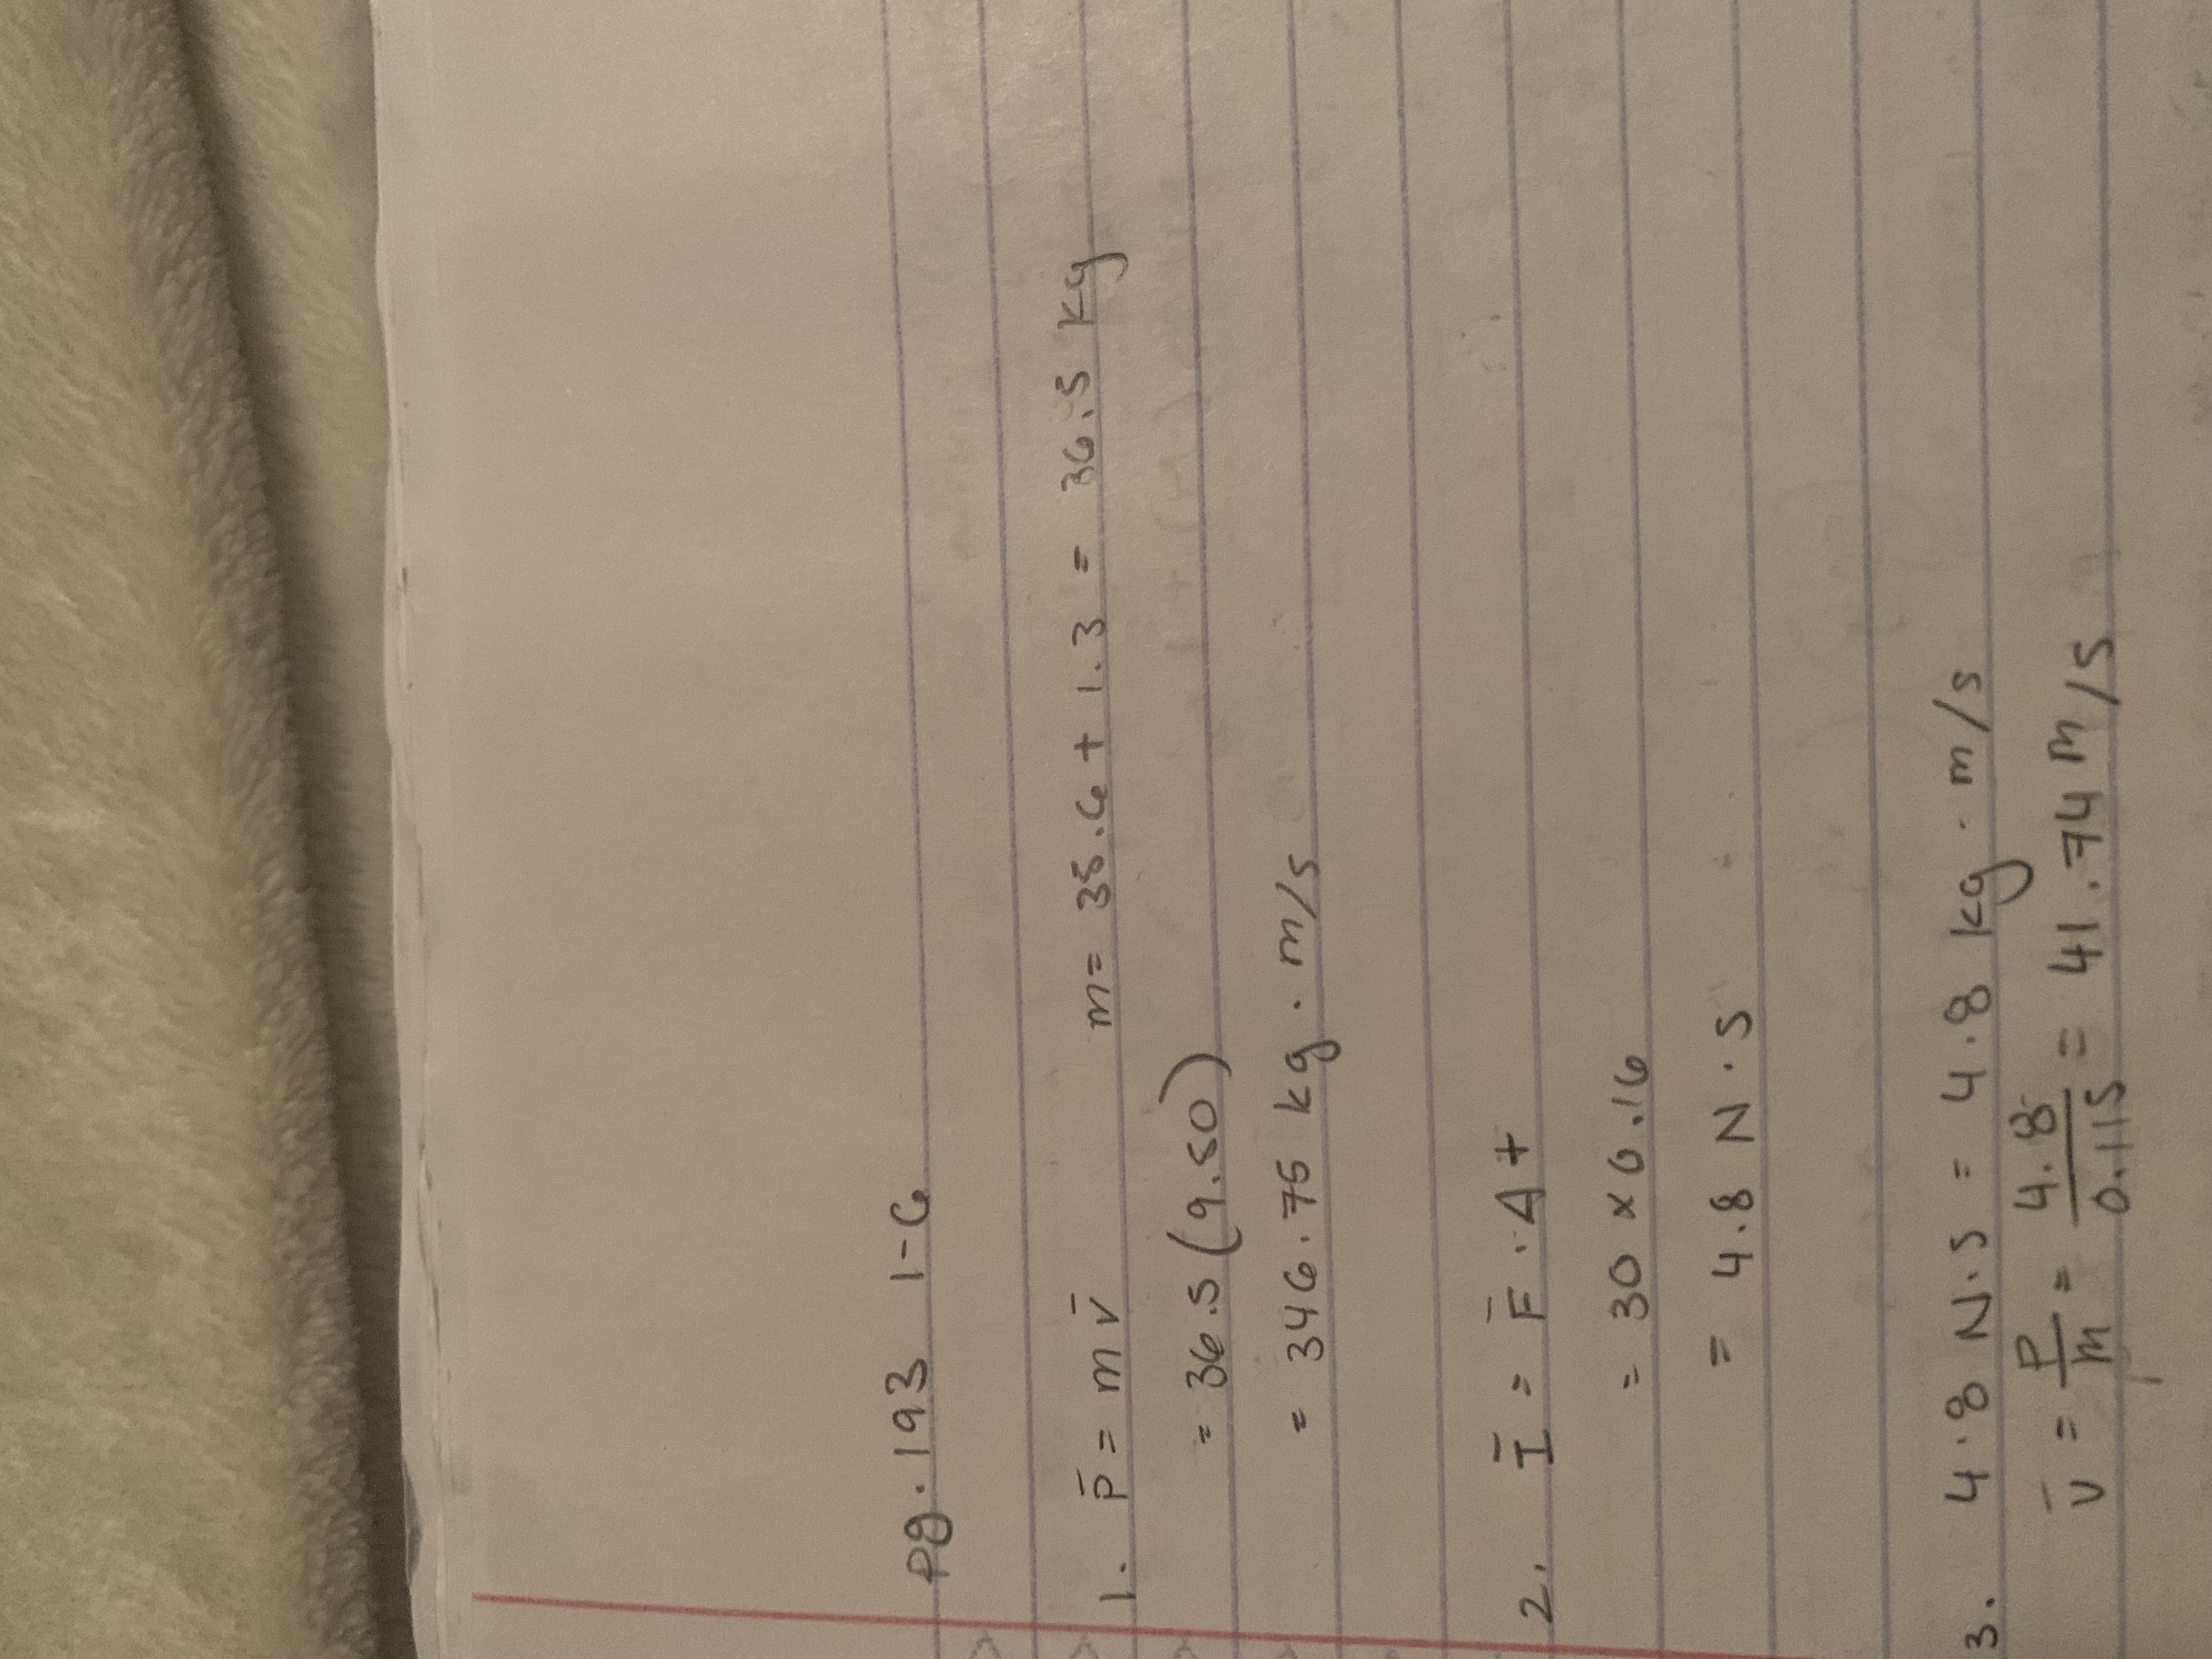 Pg. 193 1-6
1. p̄ = m v̄ m = 35.6 + 1.3 = 36.5 kg
= 36.5 (9.50)
= 346.75 kg · m/s
2. Ī = F̄ · Δt
= 30 x 0.16
= 4.8 N · s
3. 4.8 N·s = 4.8 kg · m/s
v̄ = p/m = 4.8/0.115 = 41.74 m/s